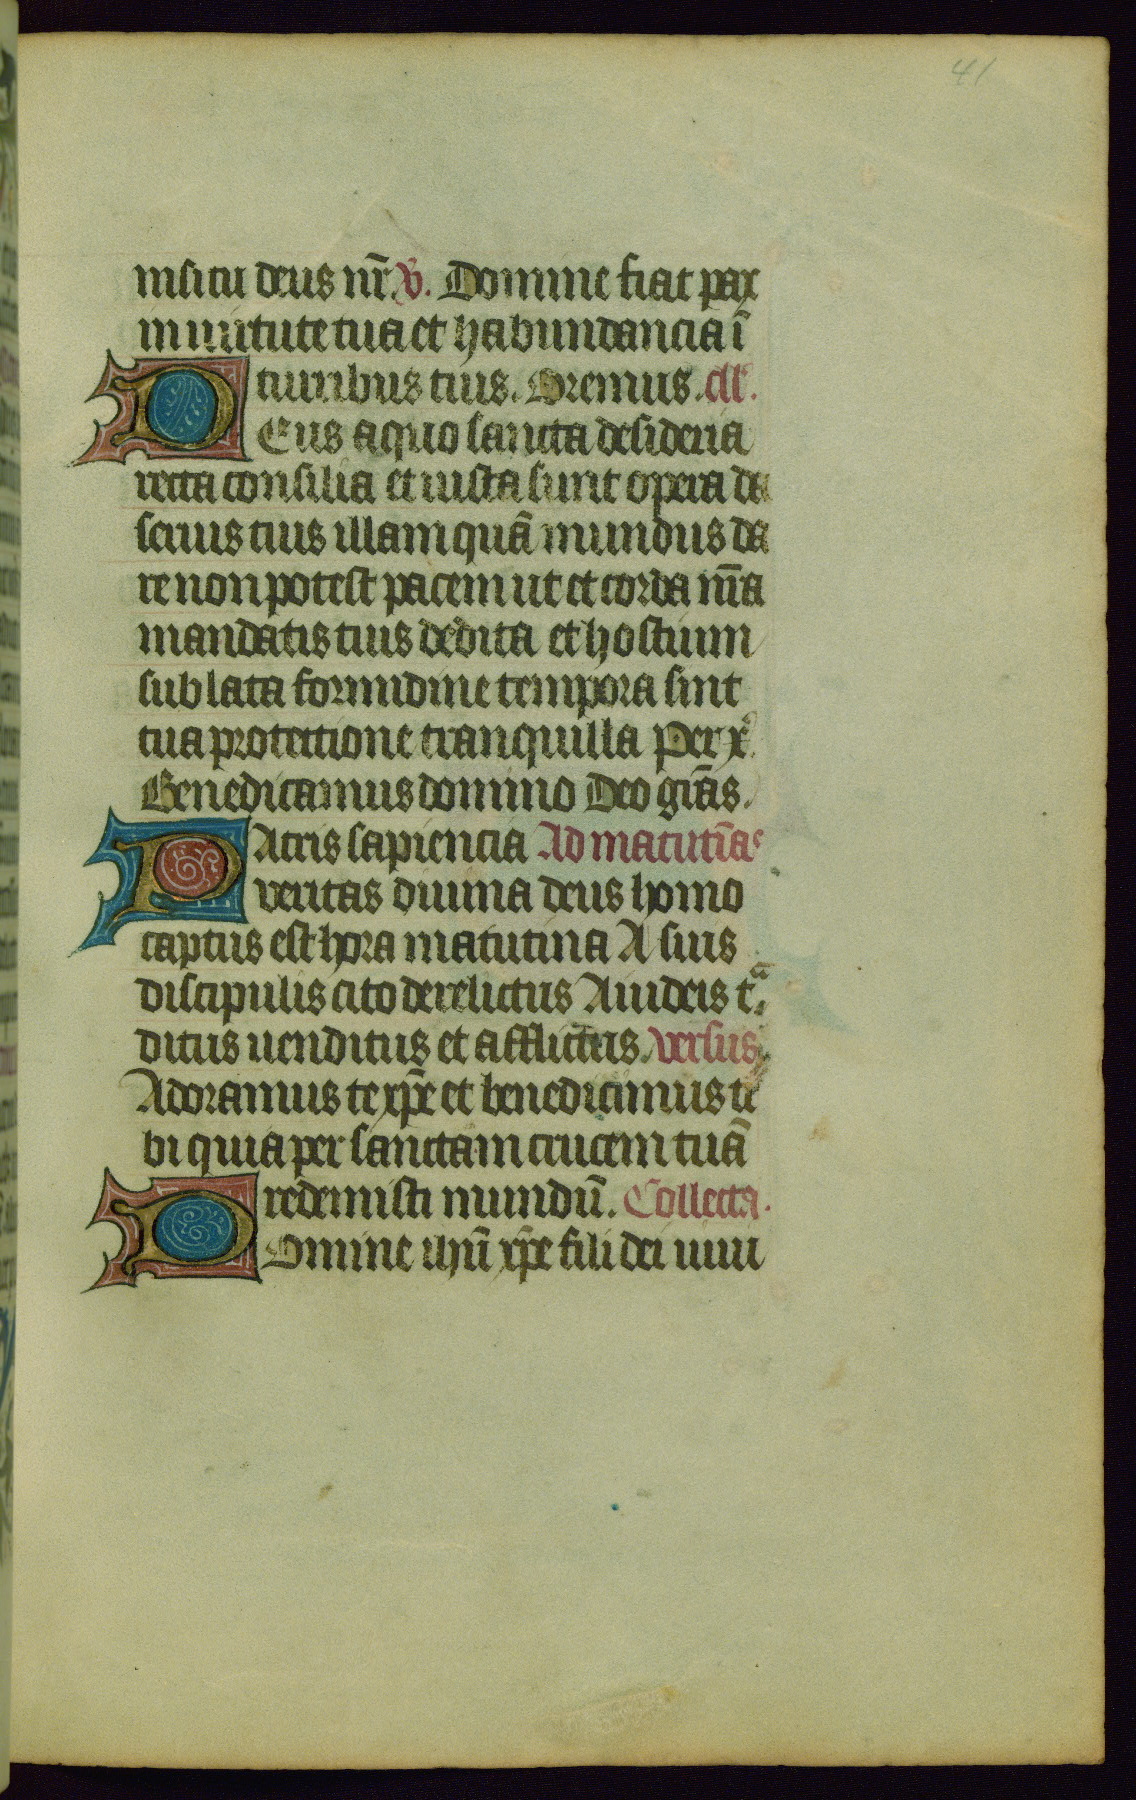 41
nisi tu deus nr̄. v̄. Domine fiat pax
in uirtute tua et habundancia ī
turribus tuis. Oremus. cll'.
DEus a quo sancta desideria
recta consilia et iusta sunt opera da
seruis tuis illam quā mundus da
re non potest pacem ut et corda nr̄a
mandatis tuis dedita et hostium
sublata formidine tempora sint
tua protectione tranquilla Per x̄
Benedicamus domino Deo grās.
PAtris sapiencia Ad matutīas
veritas diuina deus homo
captus est hora matutina A suis
discipulis cito derelictus A iudeis tͣ
ditus uenditus et afflictus. versus
Adoramus te xp̄e et benedicimus ti
bi quia per sanctam crucem tuā
redemisti mundū. Collecta.
DOmine ihū xp̄e fili dei uiui